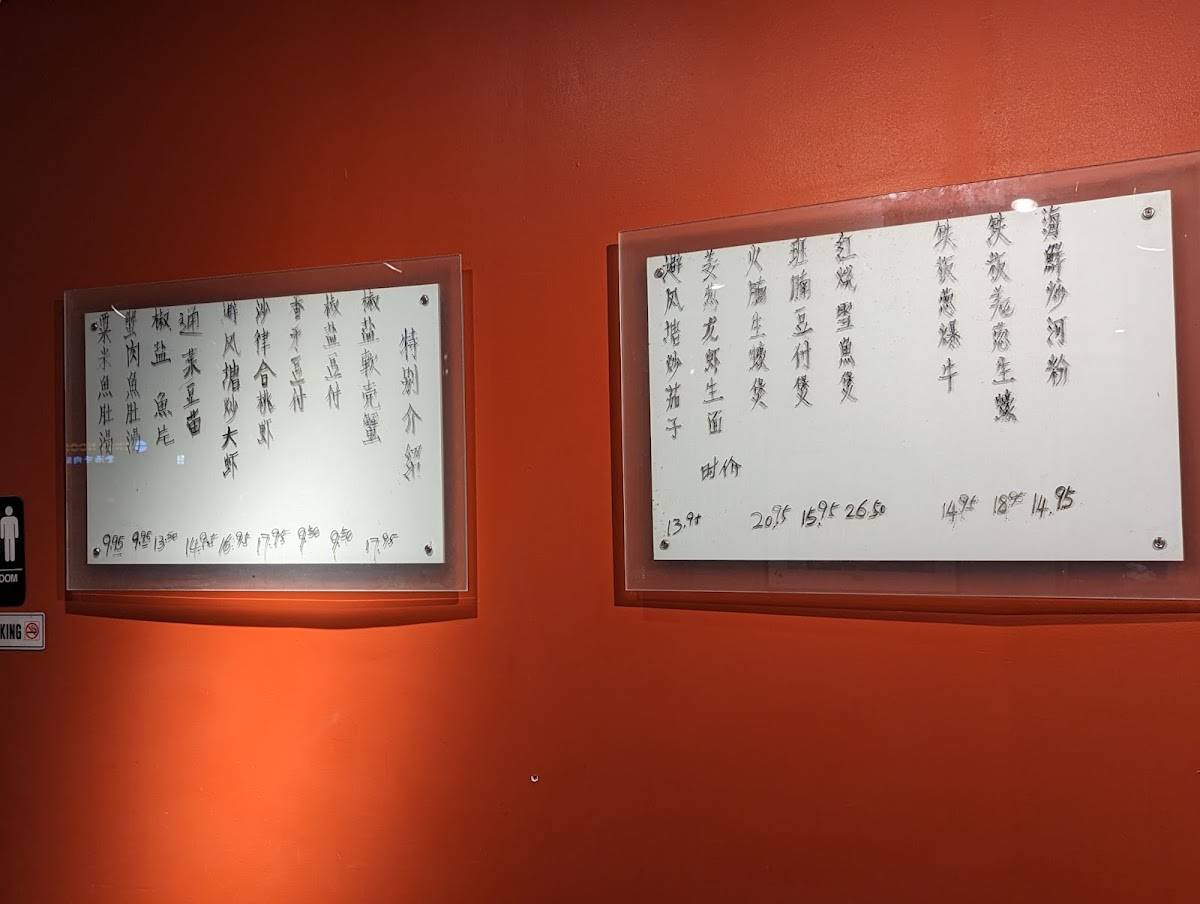 特别介绍
椒盐軟壳蟹 17.95
椒盐豆付 9.50
豆付 9.50
沙律合桃虾 17.95
避风塘炒大虾 16.95
通菜豆苗 14.95
椒盐魚片 13.50
蟹肉魚肚湯 9.95
粟米魚肚湯 9.95
海鮮炒河粉 14.95
铁板姜葱生蠔 18.95
铁板葱爆牛 14.95
红烧 魚煲 26.50
班腩豆付煲 15.95
火腩生蠔煲 20.95
姜葱龙虾生面 时价
避风塘炒茄子 13.95
OOM
KING